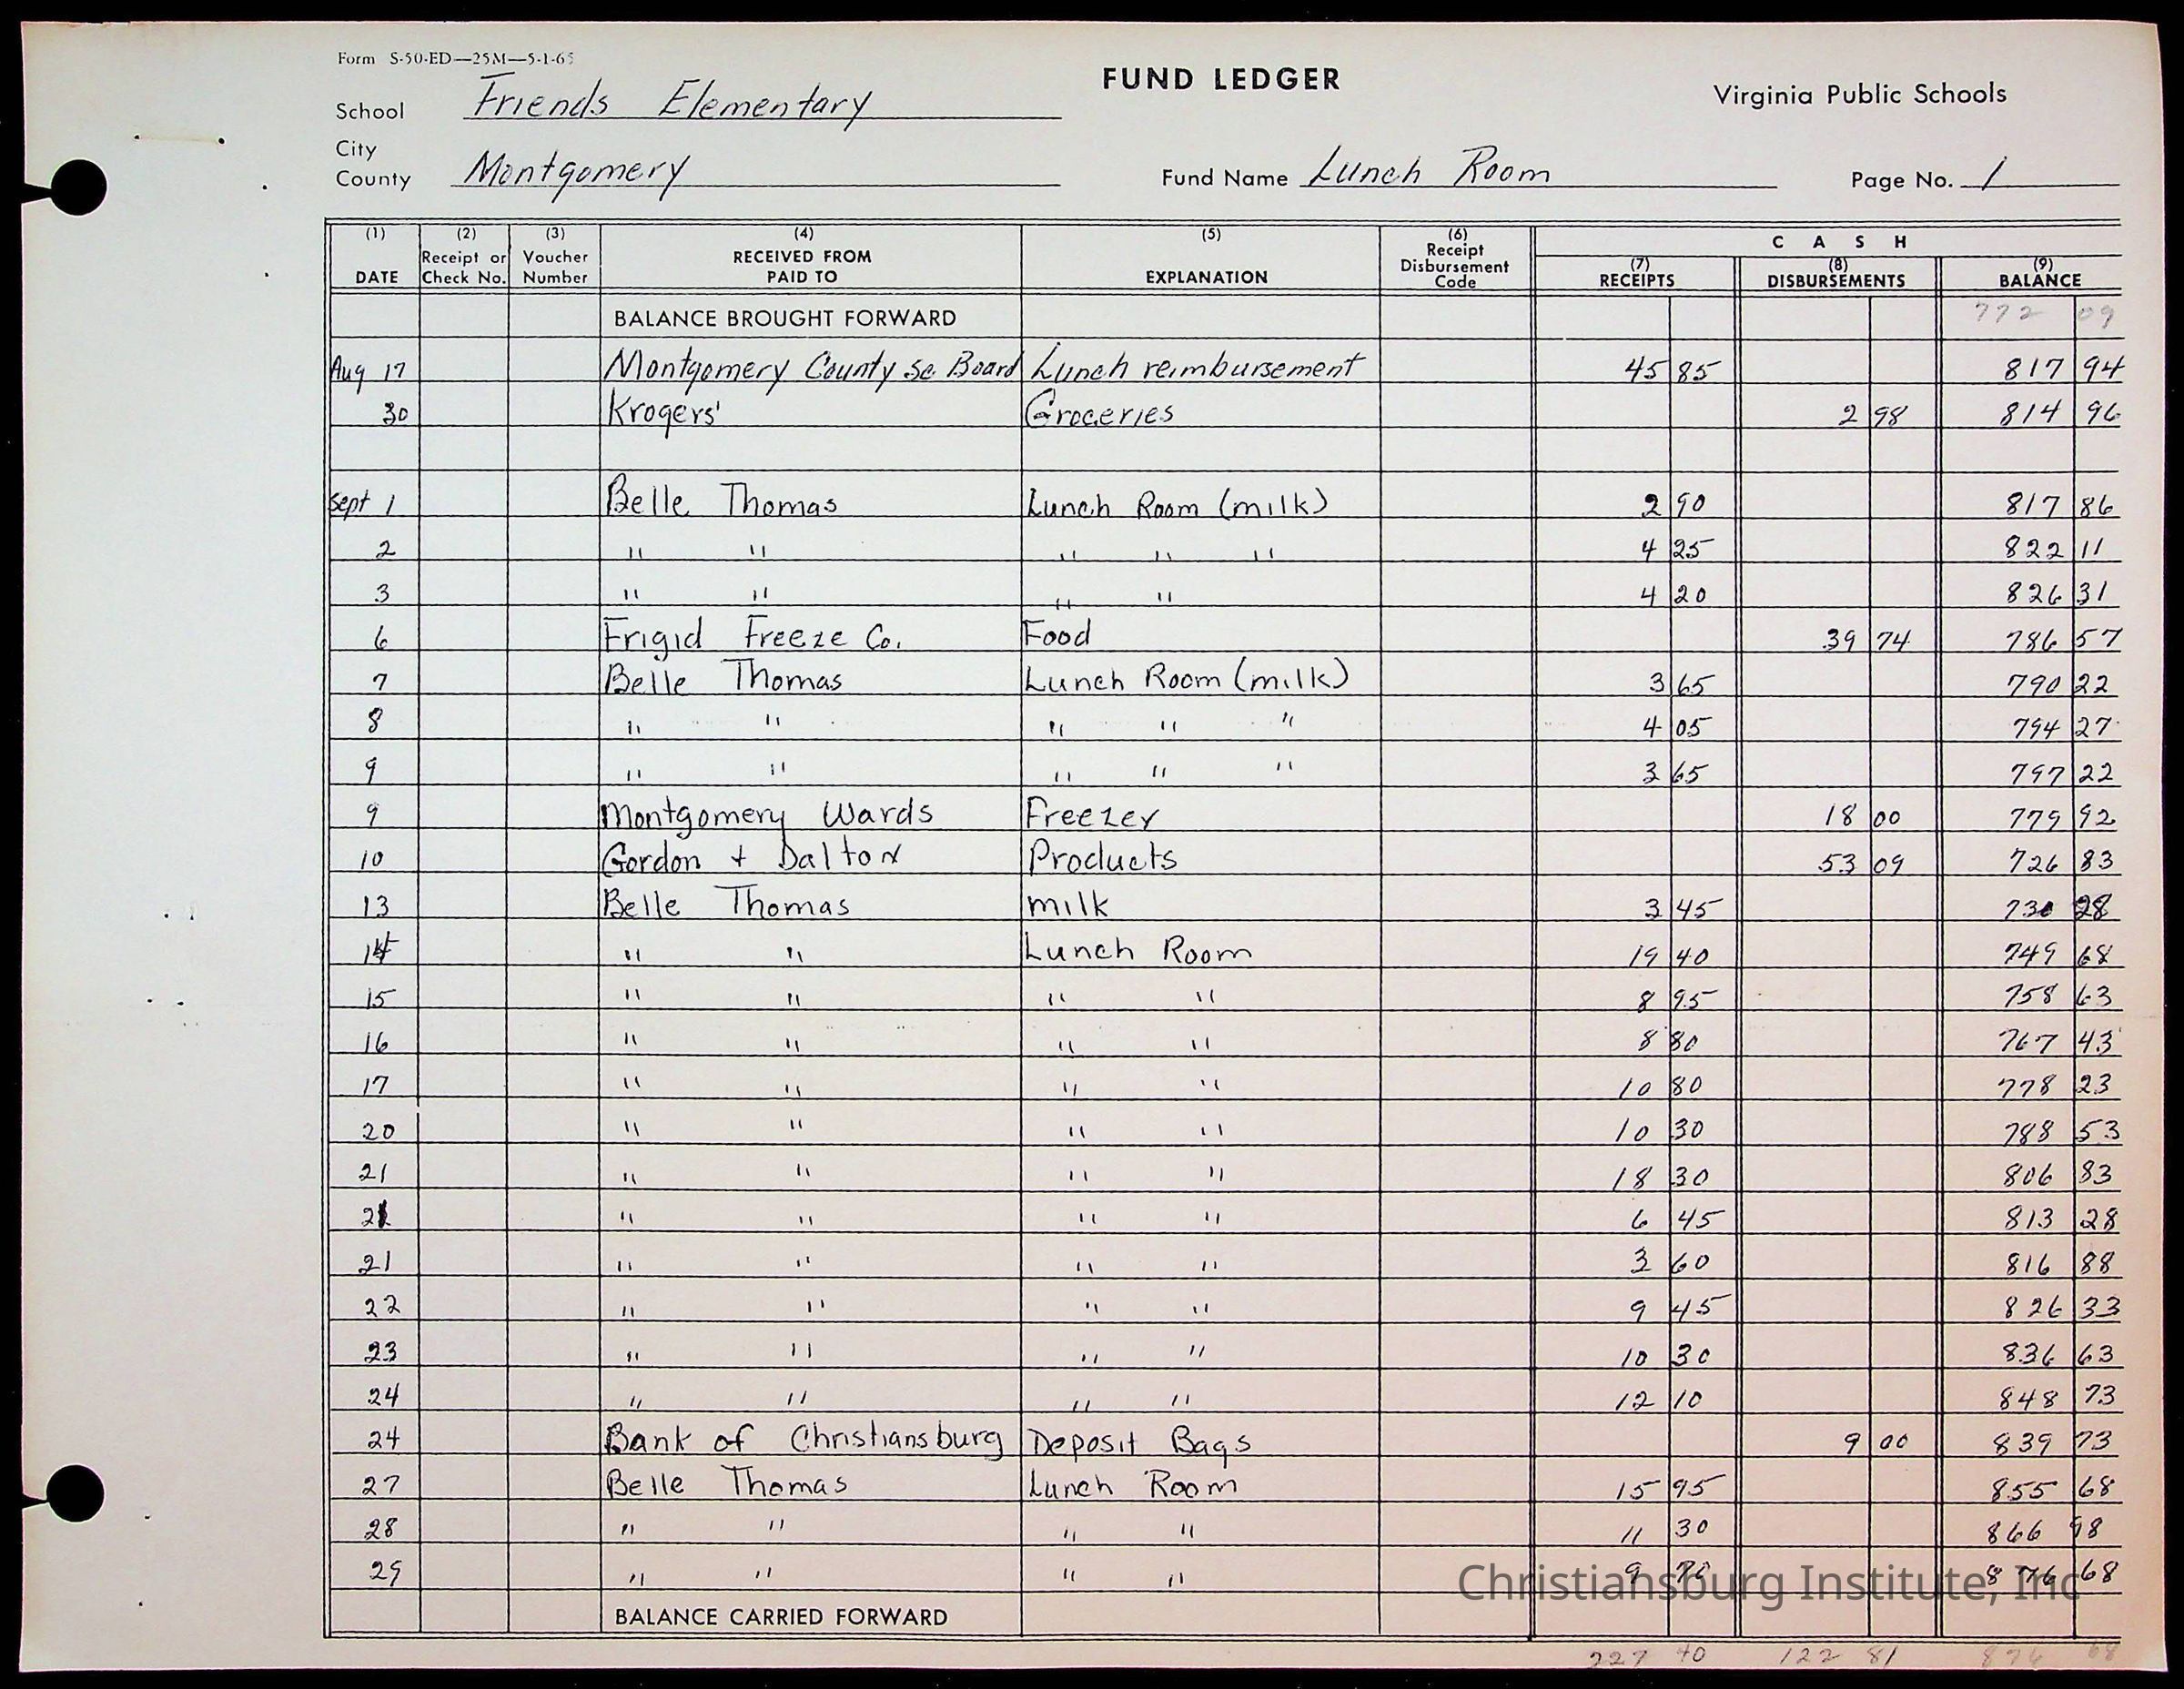 Form S-50-ED—25M—5-1-65
FUND LEDGER
Virginia Public Schools
School Friends Elementary
City
County Montgomery
Fund Name Lunch Room
Page No. 1
(1) (2) (3) (4) (5) (6) C A S H
DATE Receipt or Check No. Voucher Number RECEIVED FROM PAID TO EXPLANATION Receipt Disbursement Code (7) RECEIPTS (8) DISBURSEMENTS (9) BALANCE
BALANCE BROUGHT FORWARD 772 09
Aug 17 Montgomery County Sc Board Lunch reimbursement 45 85 817 94
30 Krogers' Groceries 2 98 814 96
Sept 1 Belle Thomas Lunch Room (milk) 2 90 817 86
2 " " " " " 4 25 822 11
3 " " " " 4 20 826 31
6 Frigid Freeze Co. Food 39 74 786 57
7 Belle Thomas Lunch Room (milk) 3 65 790 22
8 " " " " " 4 05 794 27
9 " " " " " 3 65 797 22
9 Montgomery Wards Freezer 18 00 779 92
10 Gordon + Dalton Products 53 09 726 83
13 Belle Thomas milk 3 45 730 28
14 " " Lunch Room 19 40 749 68
15 " " " " 8 95 758 63
16 " " " " 8 80 767 43
17 " " " " 10 80 778 23
20 " " " " 10 30 788 53
21 " " " " 18 30 806 83
21 " " " " 6 45 813 28
21 " " " " 3 60 816 88
22 " " " " 9 45 826 33
23 " " " " 10 30 836 63
24 " " " " 12 10 848 73
24 Bank of Christiansburg Deposit Bags 9 00 839 73
27 Belle Thomas Lunch Room 15 95 855 68
28 " " " " 11 30 866 98
29 " " " " 9 70 876 68
Christiansburg Institute, Inc
BALANCE CARRIED FORWARD
227 40 122 81 876 68